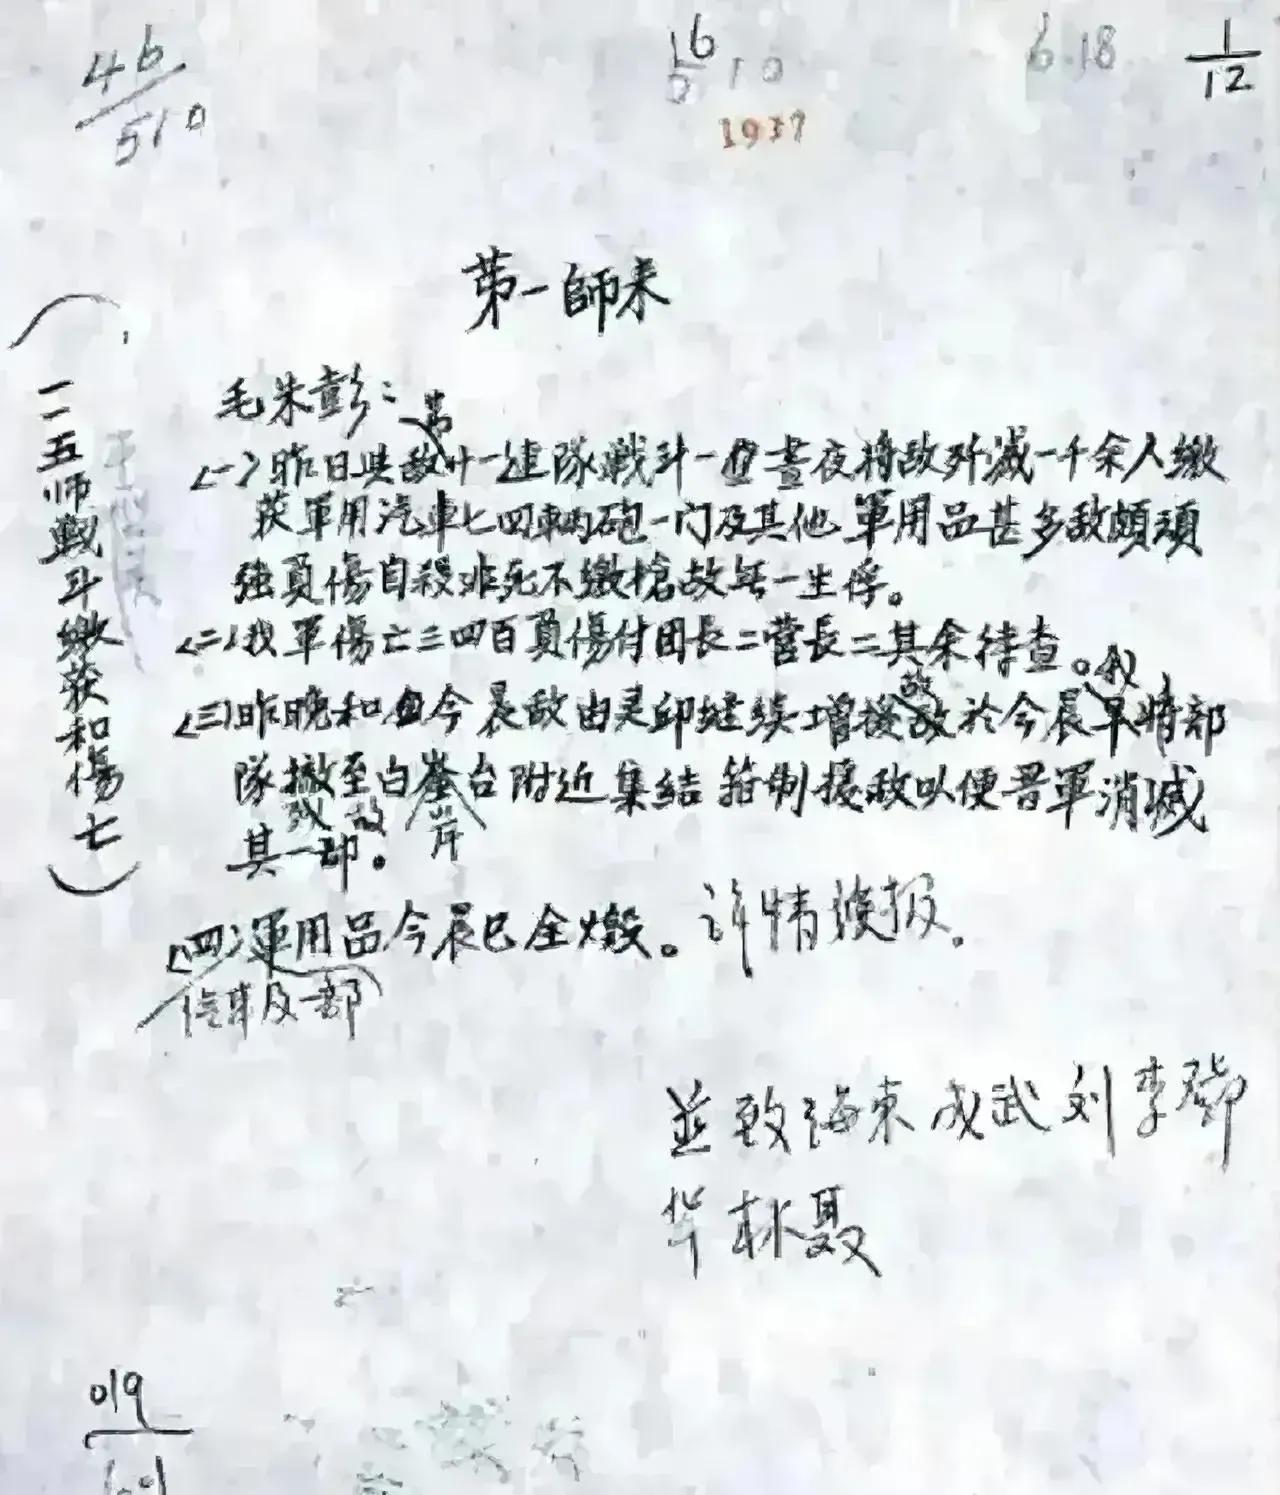 46/510
16
10
6.18
1/12
1937
第一師来
毛朱彭：
(一)昨日與敵廿一連隊戦斗一晝夜将敌歼滅一千余人繳
获軍用汽車七四輌砲一门及其他軍用品甚多敌頗頑
強負傷自殺非死不繳槍故无一生俘。
(二)我軍傷亡三四百負傷付团長二营長二其余待查。我
(三)昨晚和今晨敌由灵邱继续增援敌於今晨早将部
隊撤至白崖台附近集結箝制援敌以便晋軍消滅
残敌 岸
其一部。
(四)軍用品今晨已全燬。詳情候报。
汽車及一部
並致海東成武刘李鄧
林聂
(一一五师戰斗缴获和傷亡)
019